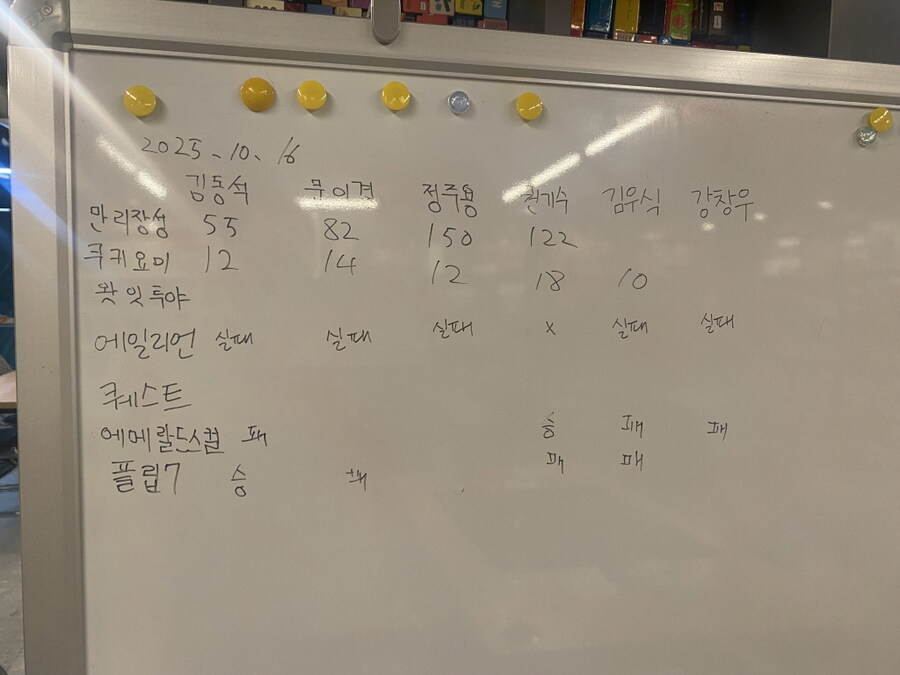 2025. 10. 16
김동석 문이경 정주용 권기수 김우식 강창우
만리장성 55 82 150 122
쿠키요미 12 14 12 18 10
왓잇투야
에일리언 실패 실패 실패 x 실패 실패
퀘스트
에메랄드스컬 패 승 패 패
플립7 승 패 패 패